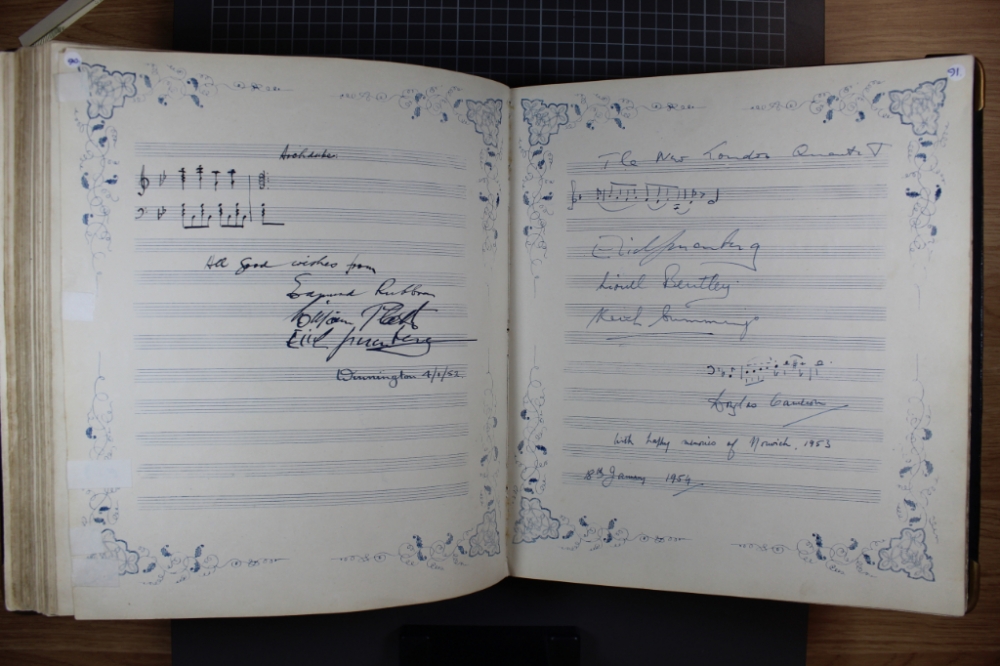 90
Archduke.
All good wishes from
Edmund Rubbra
William Pleeth
Erich Gruenberg
Winnington 4/1/52.
91
The New London Quartet
Erich Gruenberg
Lionel Bentley
Keith Cummings
Douglas Cameron
With happy memories of Norwich, 1953
8th January 1954